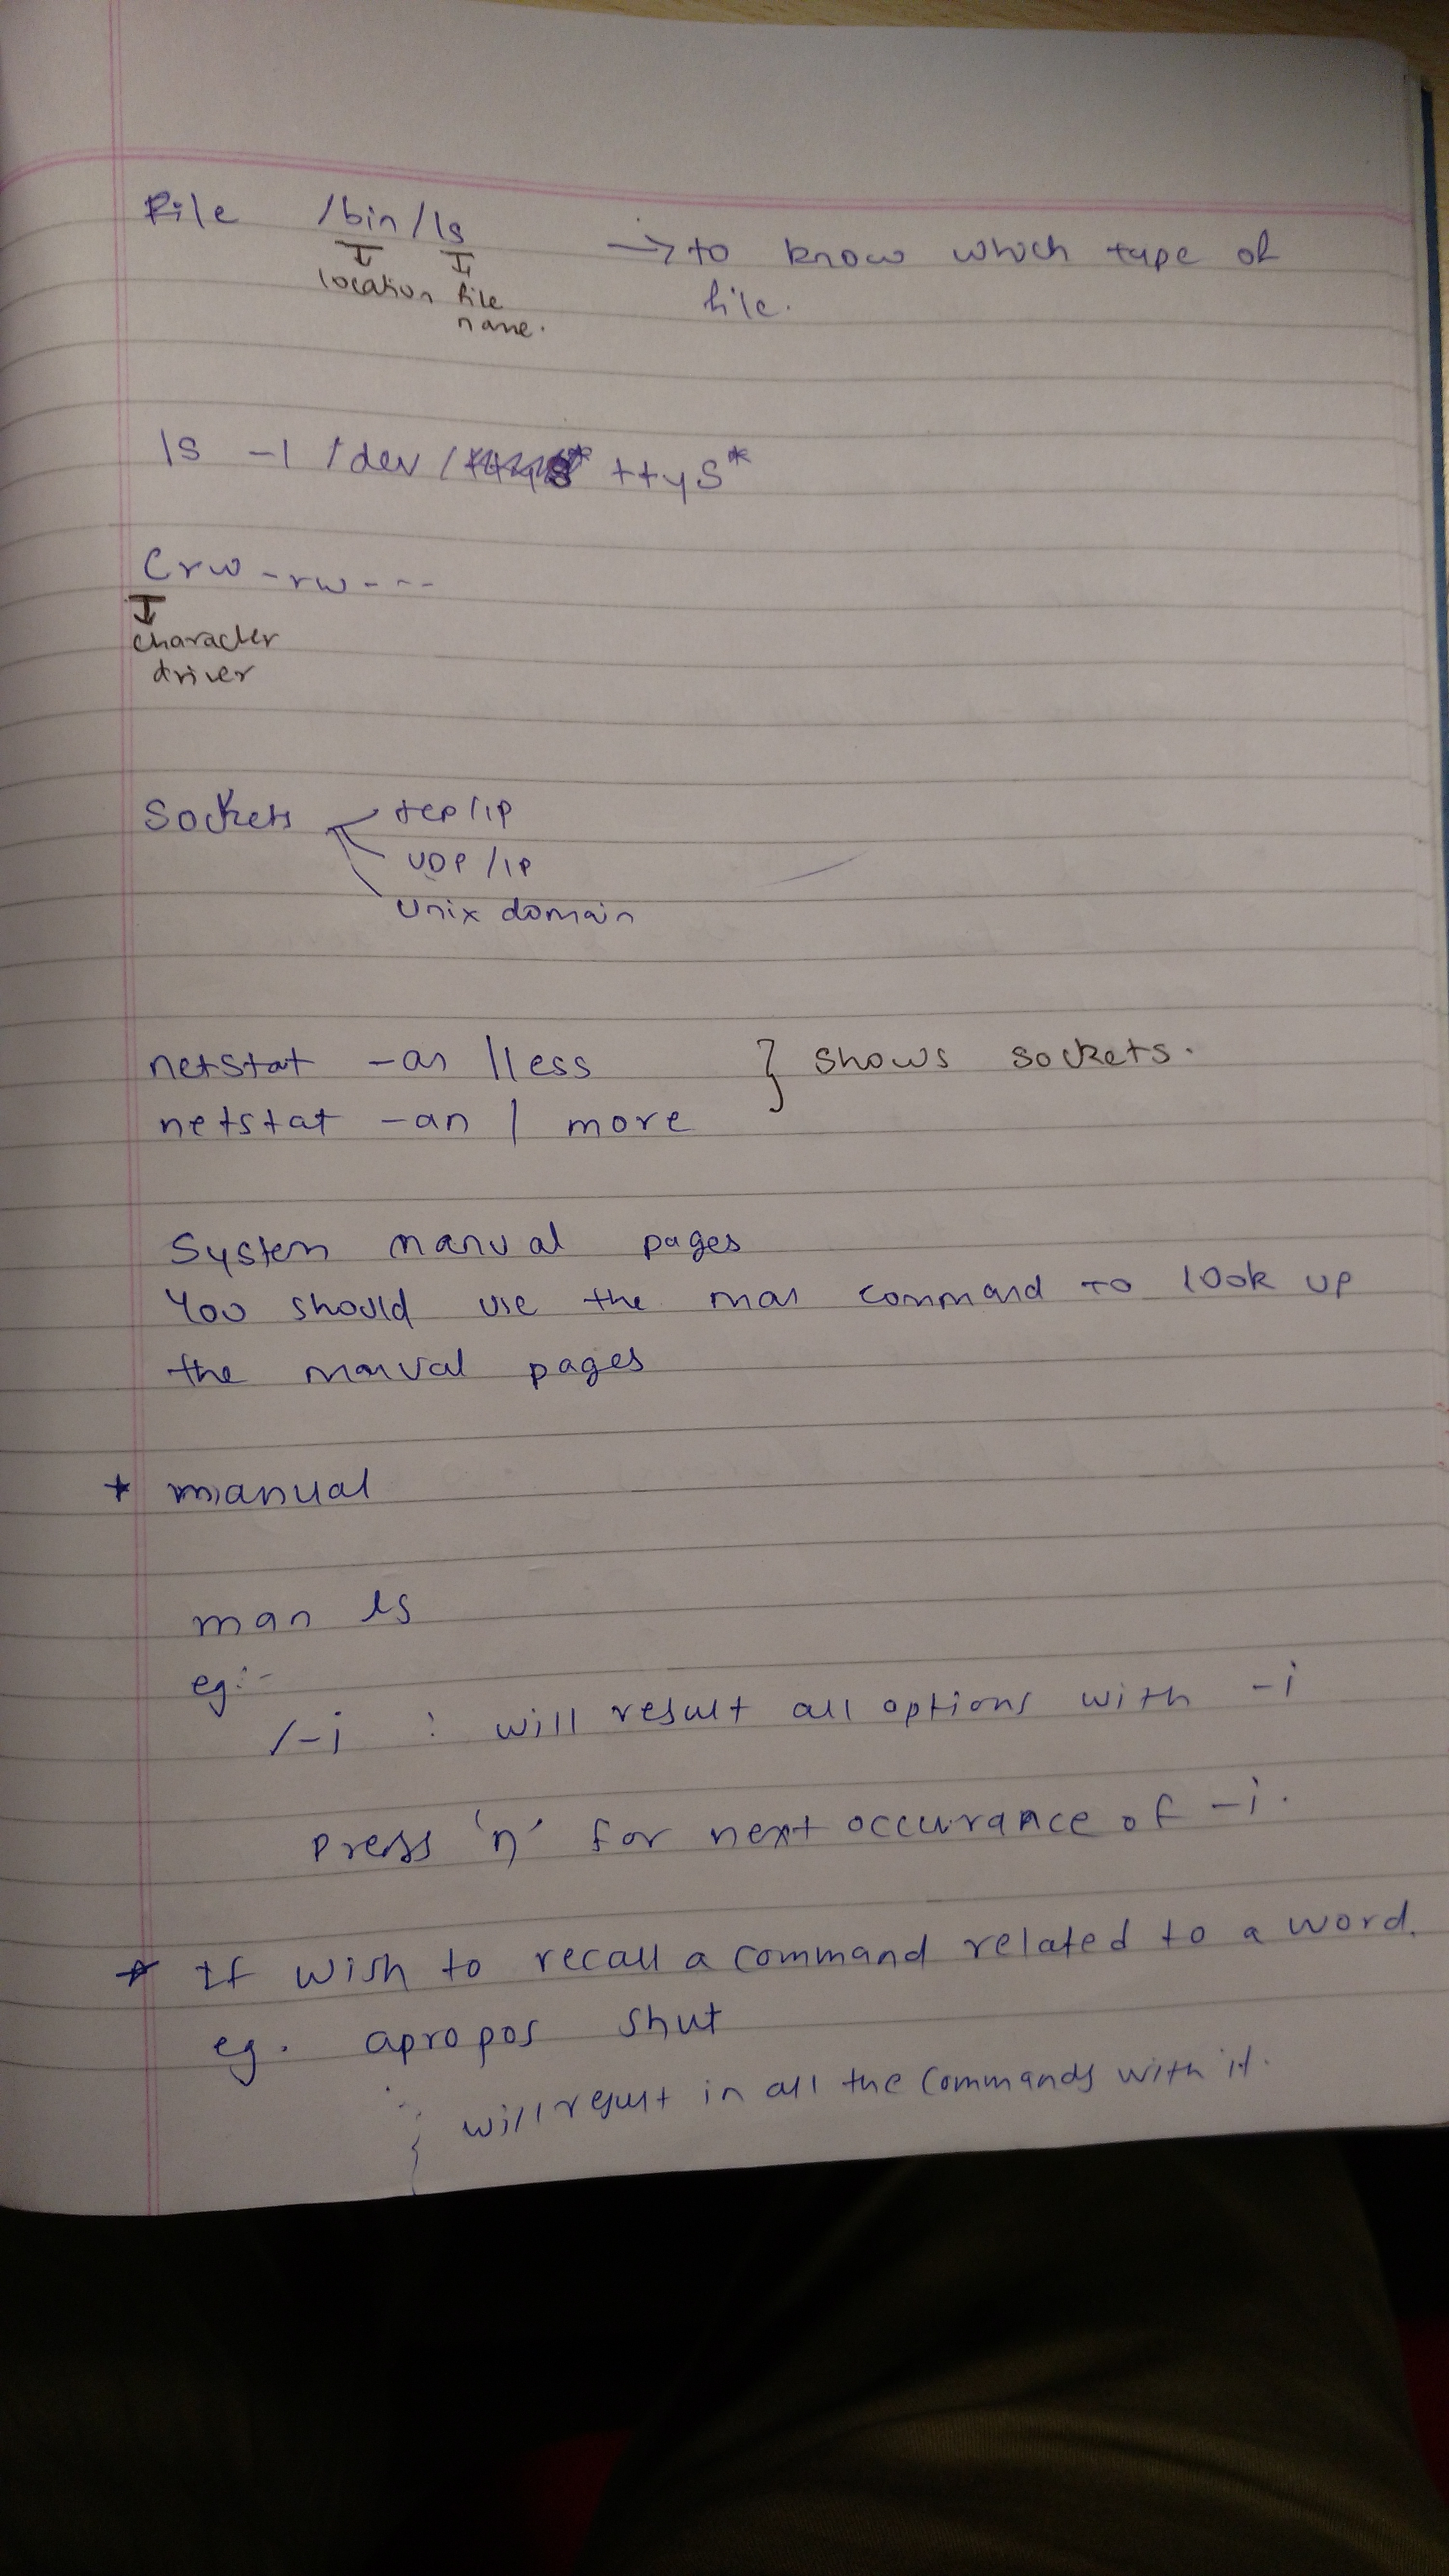 File /bin/ls → to know which type of
location file file.
name.
ls -l /dev/ ttyS*
Crw-rw----
character
driver
Sockets tcp/ip
UDP/IP
Unix domain
netstat -an |less } shows sockets.
netstat -an | more
System manual pages
You should use the man command to look up
the manual pages
* manual
man ls
eg:-
/-i : will result all options with -i
press 'n' for next occurance of -i.
* If wish to recall a command related to a word.
eg. apropos shut
will result in all the commands with it.